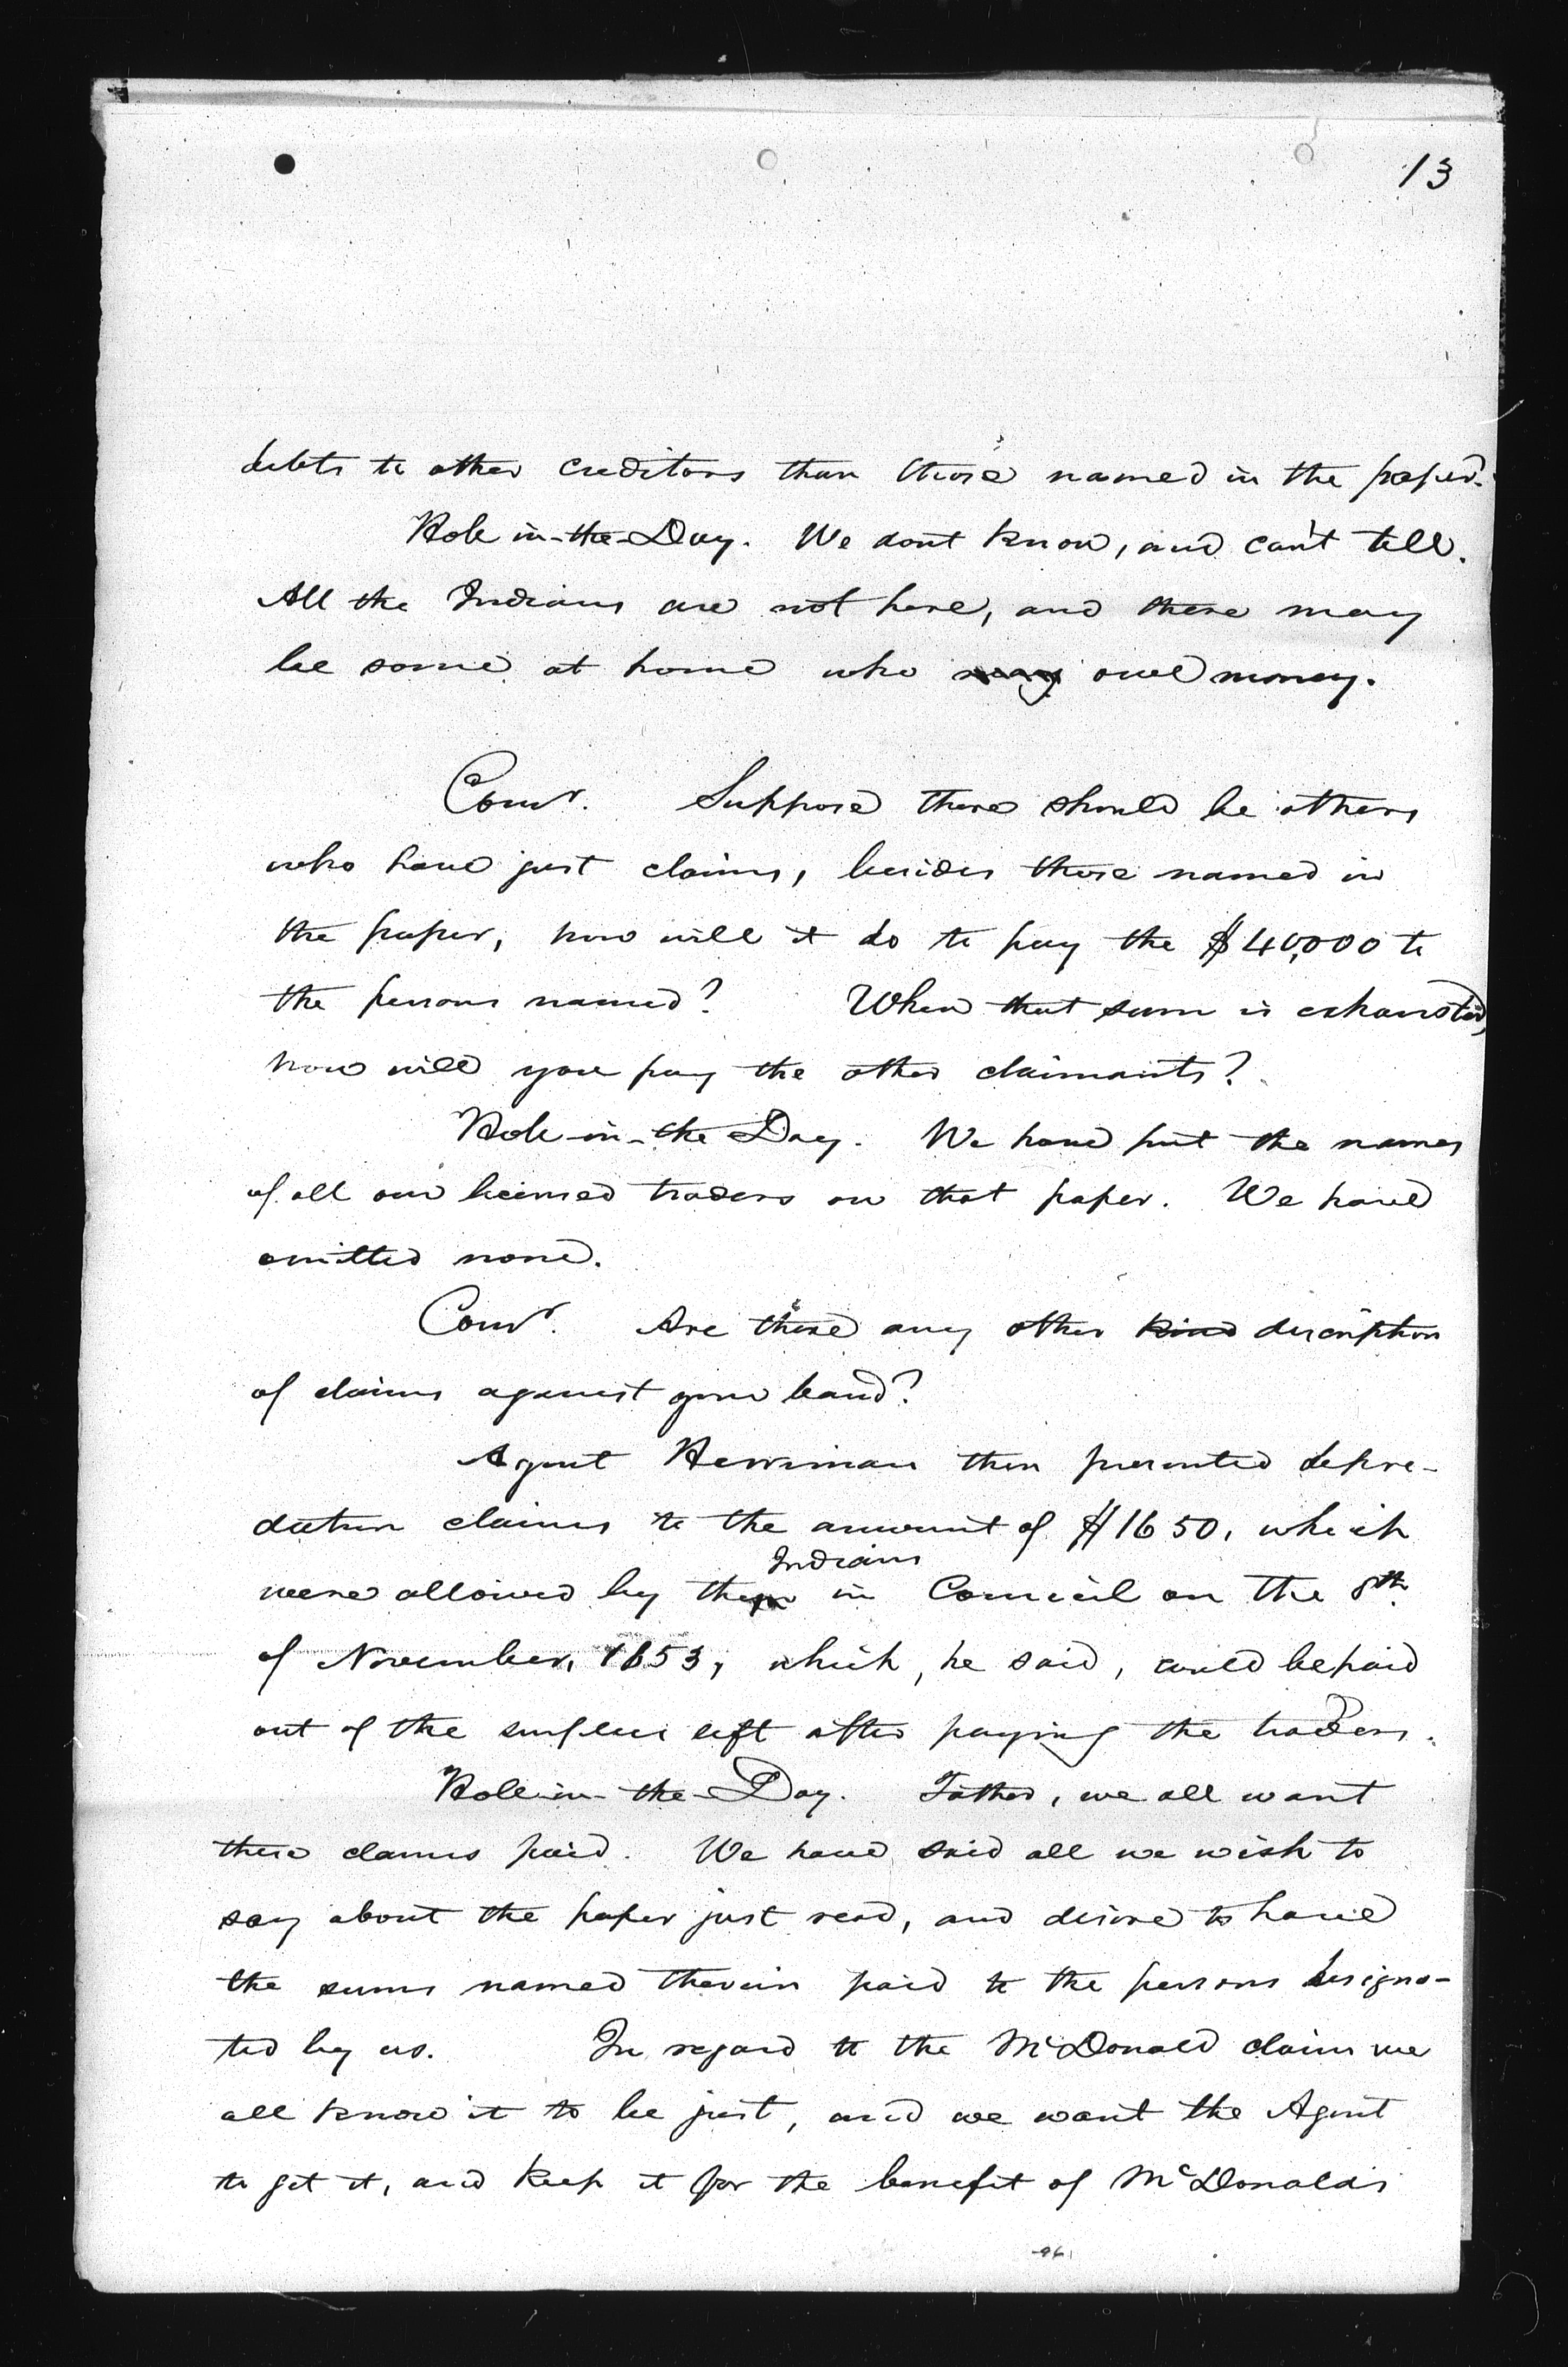 13
debts to other creditors than those named in the paper.
Hole-in-the-Day. We dont know, and can't tell.
All the Indians are not here, and there may
be some at home who may owe money.
Comr. Suppose there should be others
who have just claims, besides those named in
the paper, how will it do to pay the $40,000 to
the persons named? When that sum is exhausted,
how will you pay the other claimants?
Hole-in-the Day. We have put the names
of all our licensed traders on that paper. We have
omitted none.
Comr. Are there any other kind description
of claims against your band?
Agent Herriman then presented depre-
dation claims to the amount of $1650, which
Indians
were allowed by them in Council on the 8th
of November, 1853, which, he said, could be paid
out of the surplus left after paying the traders.
Hole-in-the-Day. Father, we all want
these claims paid. We have said all we wish to
say about the paper just read, and desire to have
the sums named therein paid to the persons designa-
ted by us. In regard to the McDonald claim we
all know it to be just, and we want the Agent
to get it, and keep it for the benefit of McDonald's